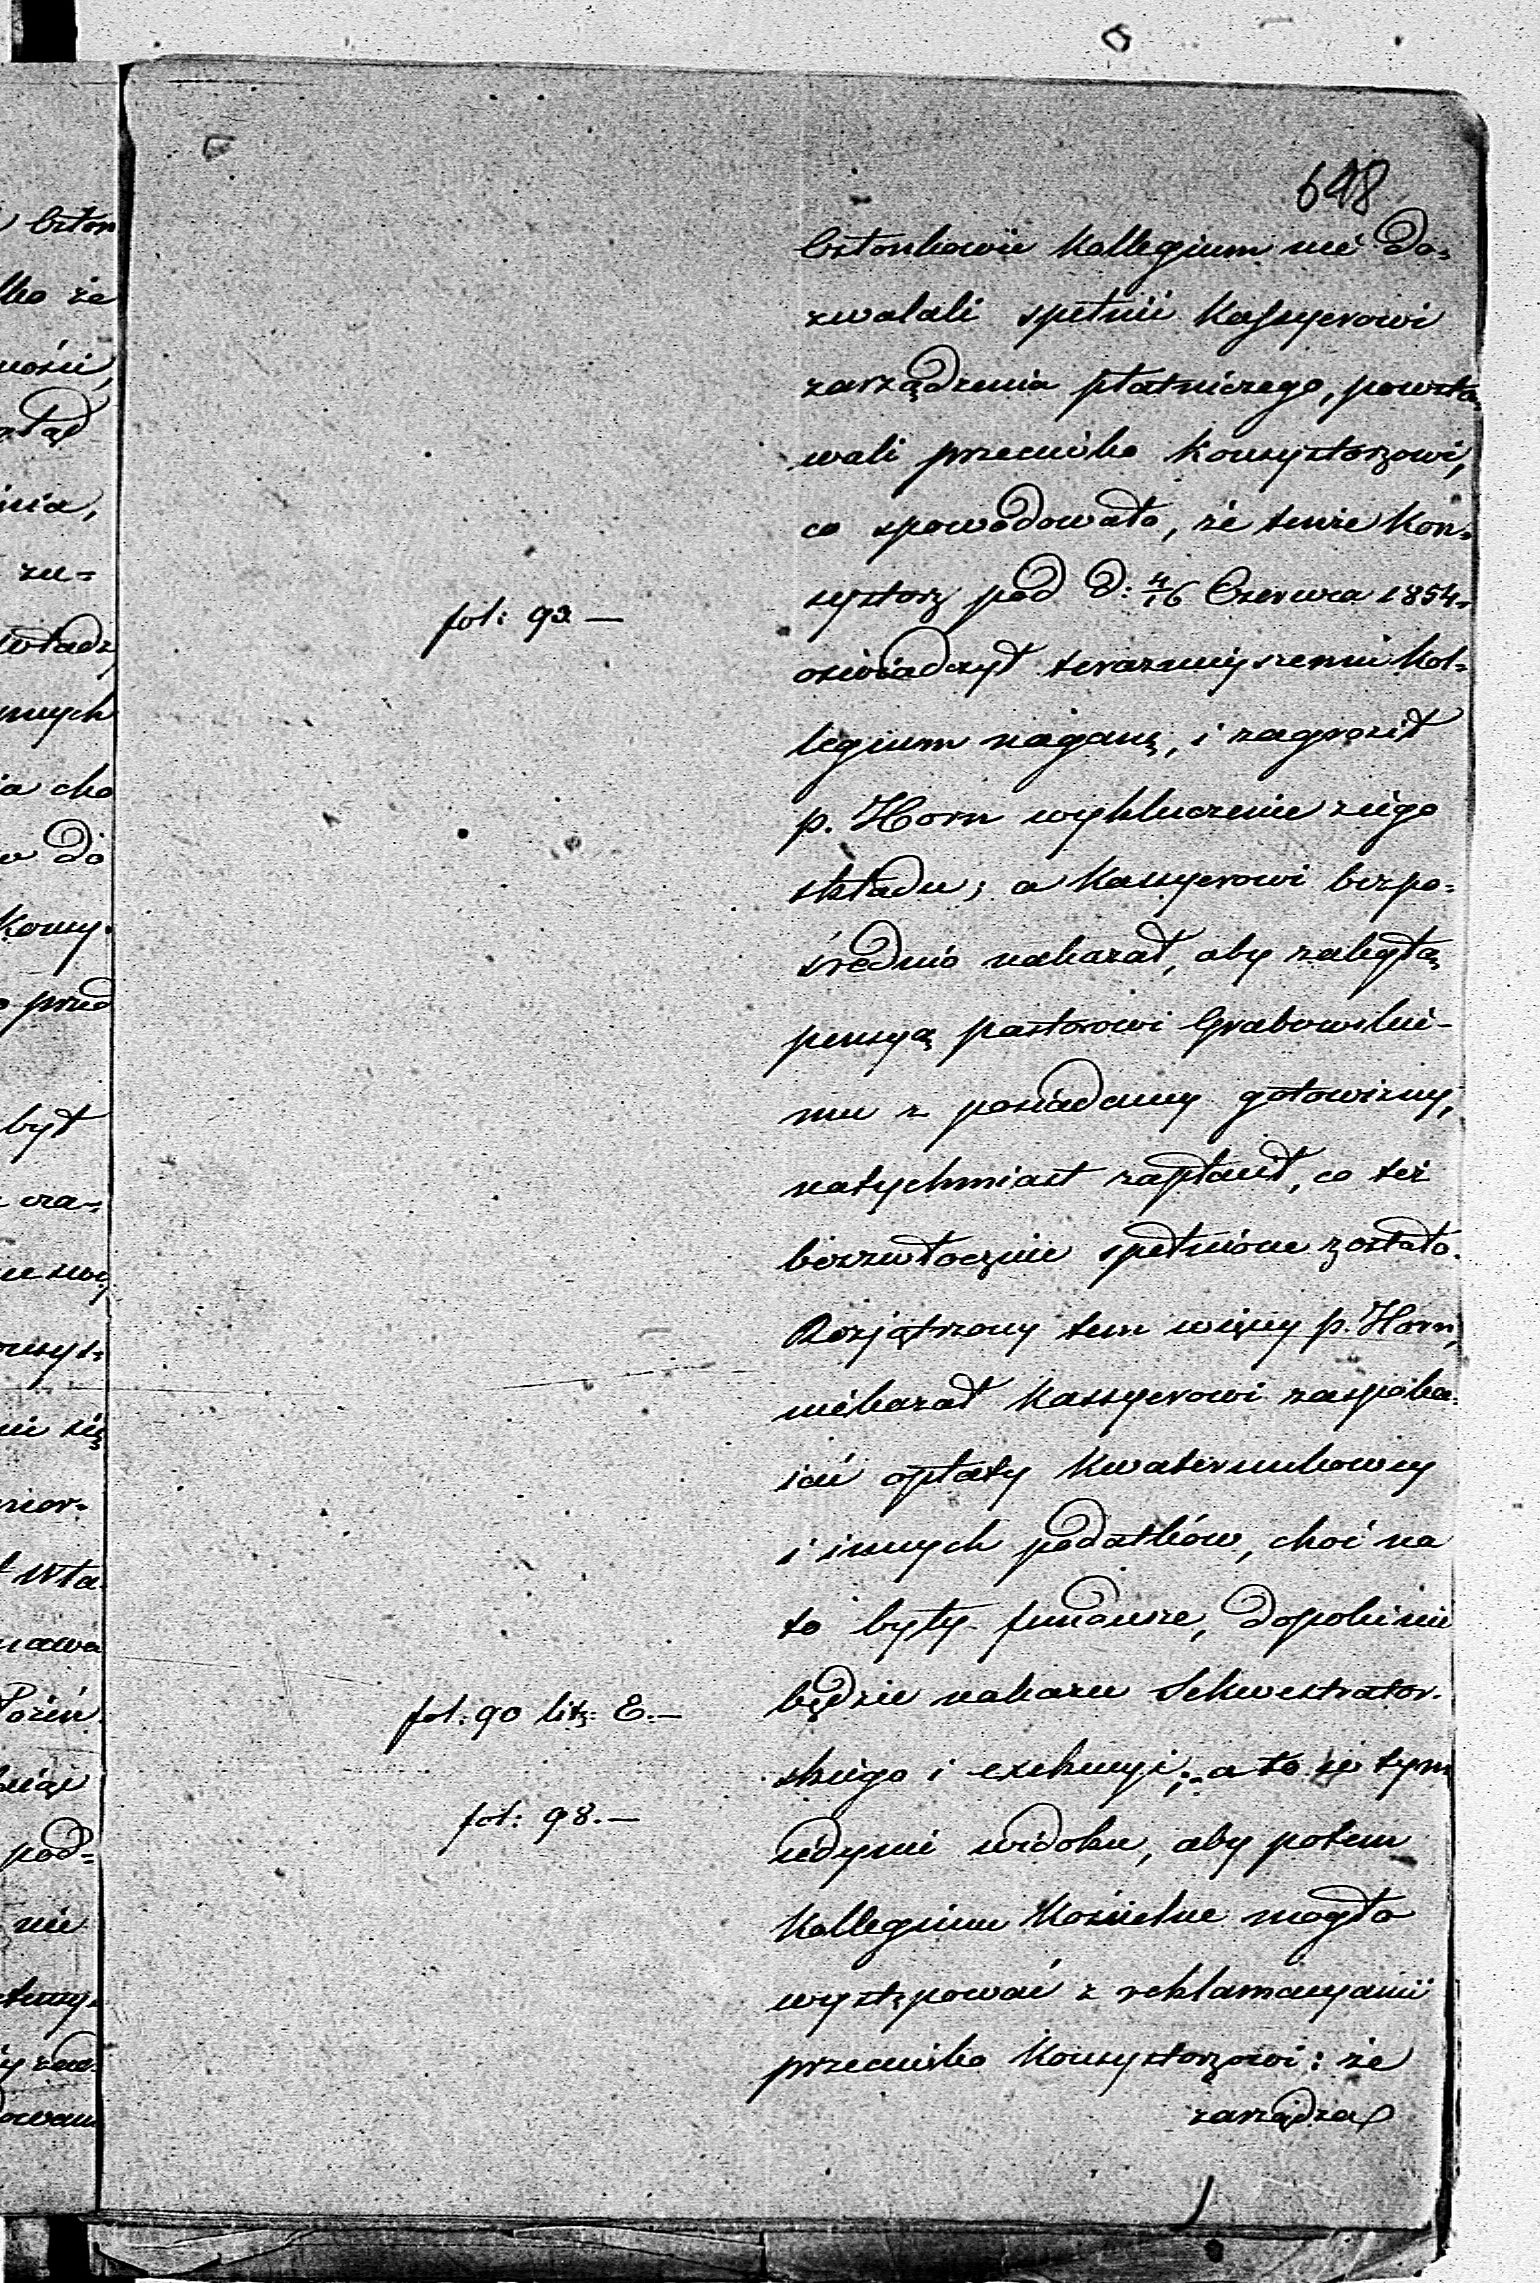 648
Członkowie Kollegium nie do-
zwalali spełnić Kassyerowi
zarządzenia płatniczego, powsta-
wali przeciwko Konsystorzowi,
co spowodowało, że tenże Kon-
systorz pod d: 4/16 Czerwca 1854.
fol: 93.—
oświadczył teraznieyszemu Kol-
legium naganę, i zagroził
p. Horn wykluczenie z iego
składu; a Kassyerowi bezpo-
średnio nakazał, aby zaległą
pensyą pastorowi Grabowskie-
mu z posiadaney gotowizny,
natychmiast zapłacił, co też
bezzwłocznie spełnione zostało.
Rozjątrzony tem więcy p. Horn,
niekazał Kassyerowi zaspoka-
iać opłaty Kwaterunkowey
i innych podatków, choć na
to były fundusze, dopoki nie
będzie nakazu Sekwestrator-
fol: 90 lit: E.—
skiego i exekucyi; a to w tym
fol: 98.—
iedynie widoku, aby potem
Kollegium Kościelne mogło
występować z reklamacyami
przeciwko Konsystorzowi: że
zarządza
Człon
lko że
ności,
nia,
za-
władz
nnych
ia cho
w do
Konsy-
przed
był
cza-
nie się
Wła-
pod-
nie